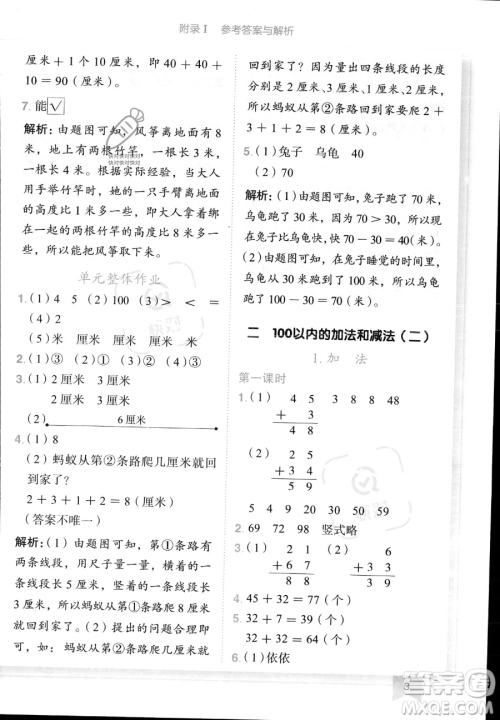 附录Ⅰ 参考答案与解析
厘米+1 厘米+1 厘米=5
厘米。
7. 能☑
解析:由题图可知,风筝离地面有 8
米,地上有两根竹竿,一根长 4 米,
一根长 3 米。根据实际经验,当大人
用手举竹竿时,加上手臂超过 1 米,
4+3+1=8(米),把两根竹竿绑
在一起的高度与风筝的高度大约
一样高,能把风筝取下来。
单元整体作业
1.(1)4 5 (2)100 (3)> < =
(4)2
2.(1)米 厘米 厘米 厘米
(2)①④
3.(1)2 厘米 3 厘米
3 厘米 2 厘米
(2) 6 厘米
4.(1)8
(2)蚂蚁从第②条路爬几厘米就
回到家了?
2+3+1+2=8(厘米)
(答案不唯一)
解析:(1)由题图可知,第①条路
线,用尺子量,横着的一条线段长
长 5 厘米,竖着的一条线段长
3 厘米,所以蚂蚁从第①条路线走
是 8 厘米。(2)提出的问题合理
即可,由题图可知,第②条路线走
的路线长是四条小线段的长度
之和,这四条线段的长度
分别为 2 厘米、3 厘米、1 厘米、
2 厘米。
所以蚂蚁从第②条路回家要爬 2+
3+1+2=8(厘米)。
5.(1)兔子 乌龟 40
(2)70
解析:由题图可知,兔子跑了 70 米,
乌龟跑了 30 米,兔子比乌龟多跑
了 70-30=40(米)。比赛开始时,
兔子比乌龟快,快 70-30=
40(米),在兔子睡觉的时间里,
乌龟到达了终点,所以乌龟
跑了 70 米。
二 100以内的加法和减法(二)
1.加 法
第一课时
1.(1) 4 5 54 38 8 48
+ 3
4 8
(2) 1 5
+ 3 4
4 9
5 4 59 50 9 59
2. 69 72 98 竖式略
3.(1) 2 1 (2) 3 2
+ 3 2 + 3 3
4. 45+32=77(个)
5. 32+7=39(个)
32+42=74(个)
6.(1)依依
3
答案圈
MXQE.COM